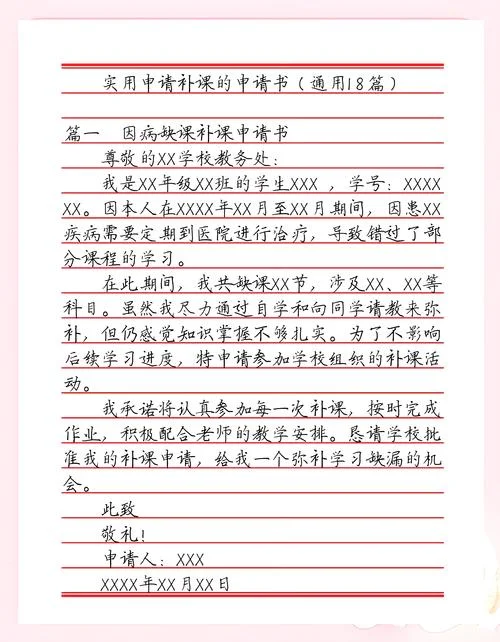 实用申请补课的申请书（通用18篇）
篇一 因病缺课补课申请书
尊敬的XX学校教务处：
我是XX年级XX班的学生XXX ，学号：XXXX
XX。因本人在XXXX年XX月至XX月期间，因患XX
疾病需要定期到医院进行治疗，导致错过了部
分课程的学习。
在此期间，我共缺课XX节，涉及XX、XX等
科目。虽然我尽力通过自学和向同学请教来弥
补，但仍感觉知识掌握不够扎实。为了不影响
后续学习进度，特申请参加学校组织的补课活
动。
我承诺将认真参加每一次补课，按时完成
作业，积极配合老师的教学安排。恳请学校批
准我的补课申请，给我一个弥补学习缺漏的机
会。
此致
敬礼！
申请人：XXX
XXXX年XX月XX日